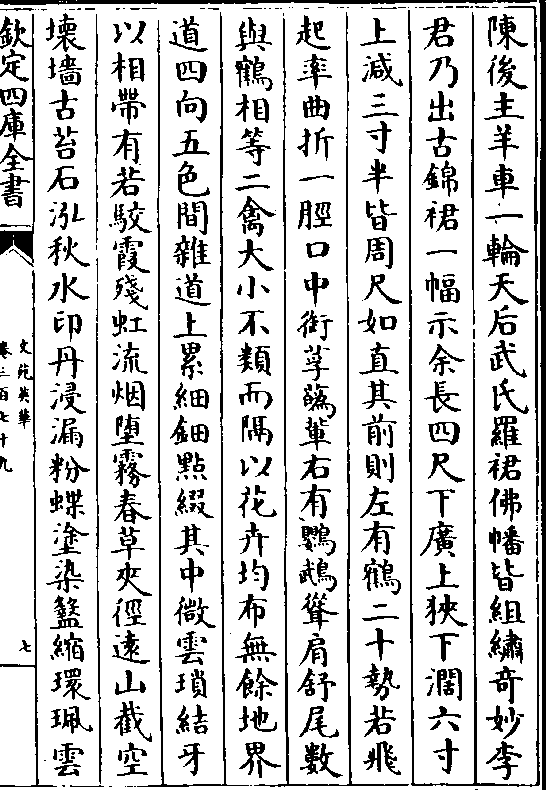 陳後主羊車一輪天后武氏羅裙佛幡皆組繡竒妙李
君乃出古錦裙一幅示余長四尺下廣上狹下濶六寸
上減三寸半皆周尺如直其前則左有鶴二十勢若飛
起率曲折一脛口中銜莩蘤輩右有鸚鵡聳肩舒尾數
與鶴相等二禽大小不類而隔以花卉均布無餘地界
道四向五色間雜道上累細鈿點綴其中微雲瑣結牙
以相帶有若駮霞殘虹流烟墮霧春草夾徑遠山截空
壞墻古苔石泓秋水印丹浸漏粉蝶塗染盭縮環珮雲
欽定四庫全書
文苑英華
卷三百七十九
七